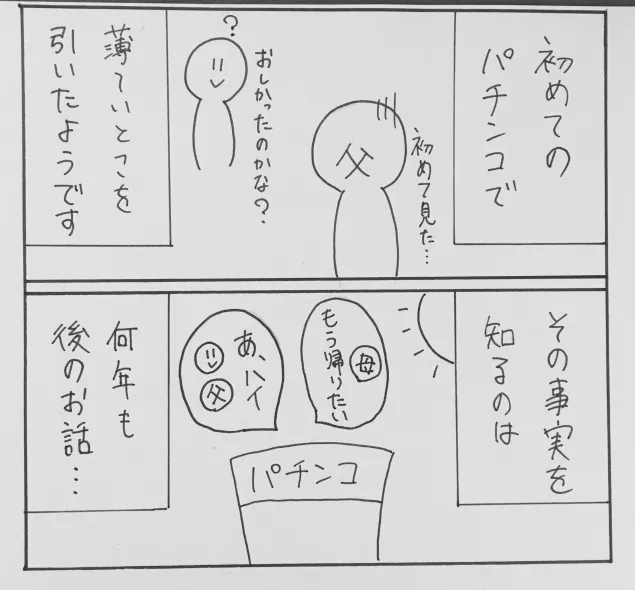 初めての
パチンコで
初めて見た…
父
おしかったのかな?
?
薄いとこを
引いたようです
その事実を
知るのは
もう帰りたい
母
あ、ハイ
父
パチンコ
何年も
後のお話…